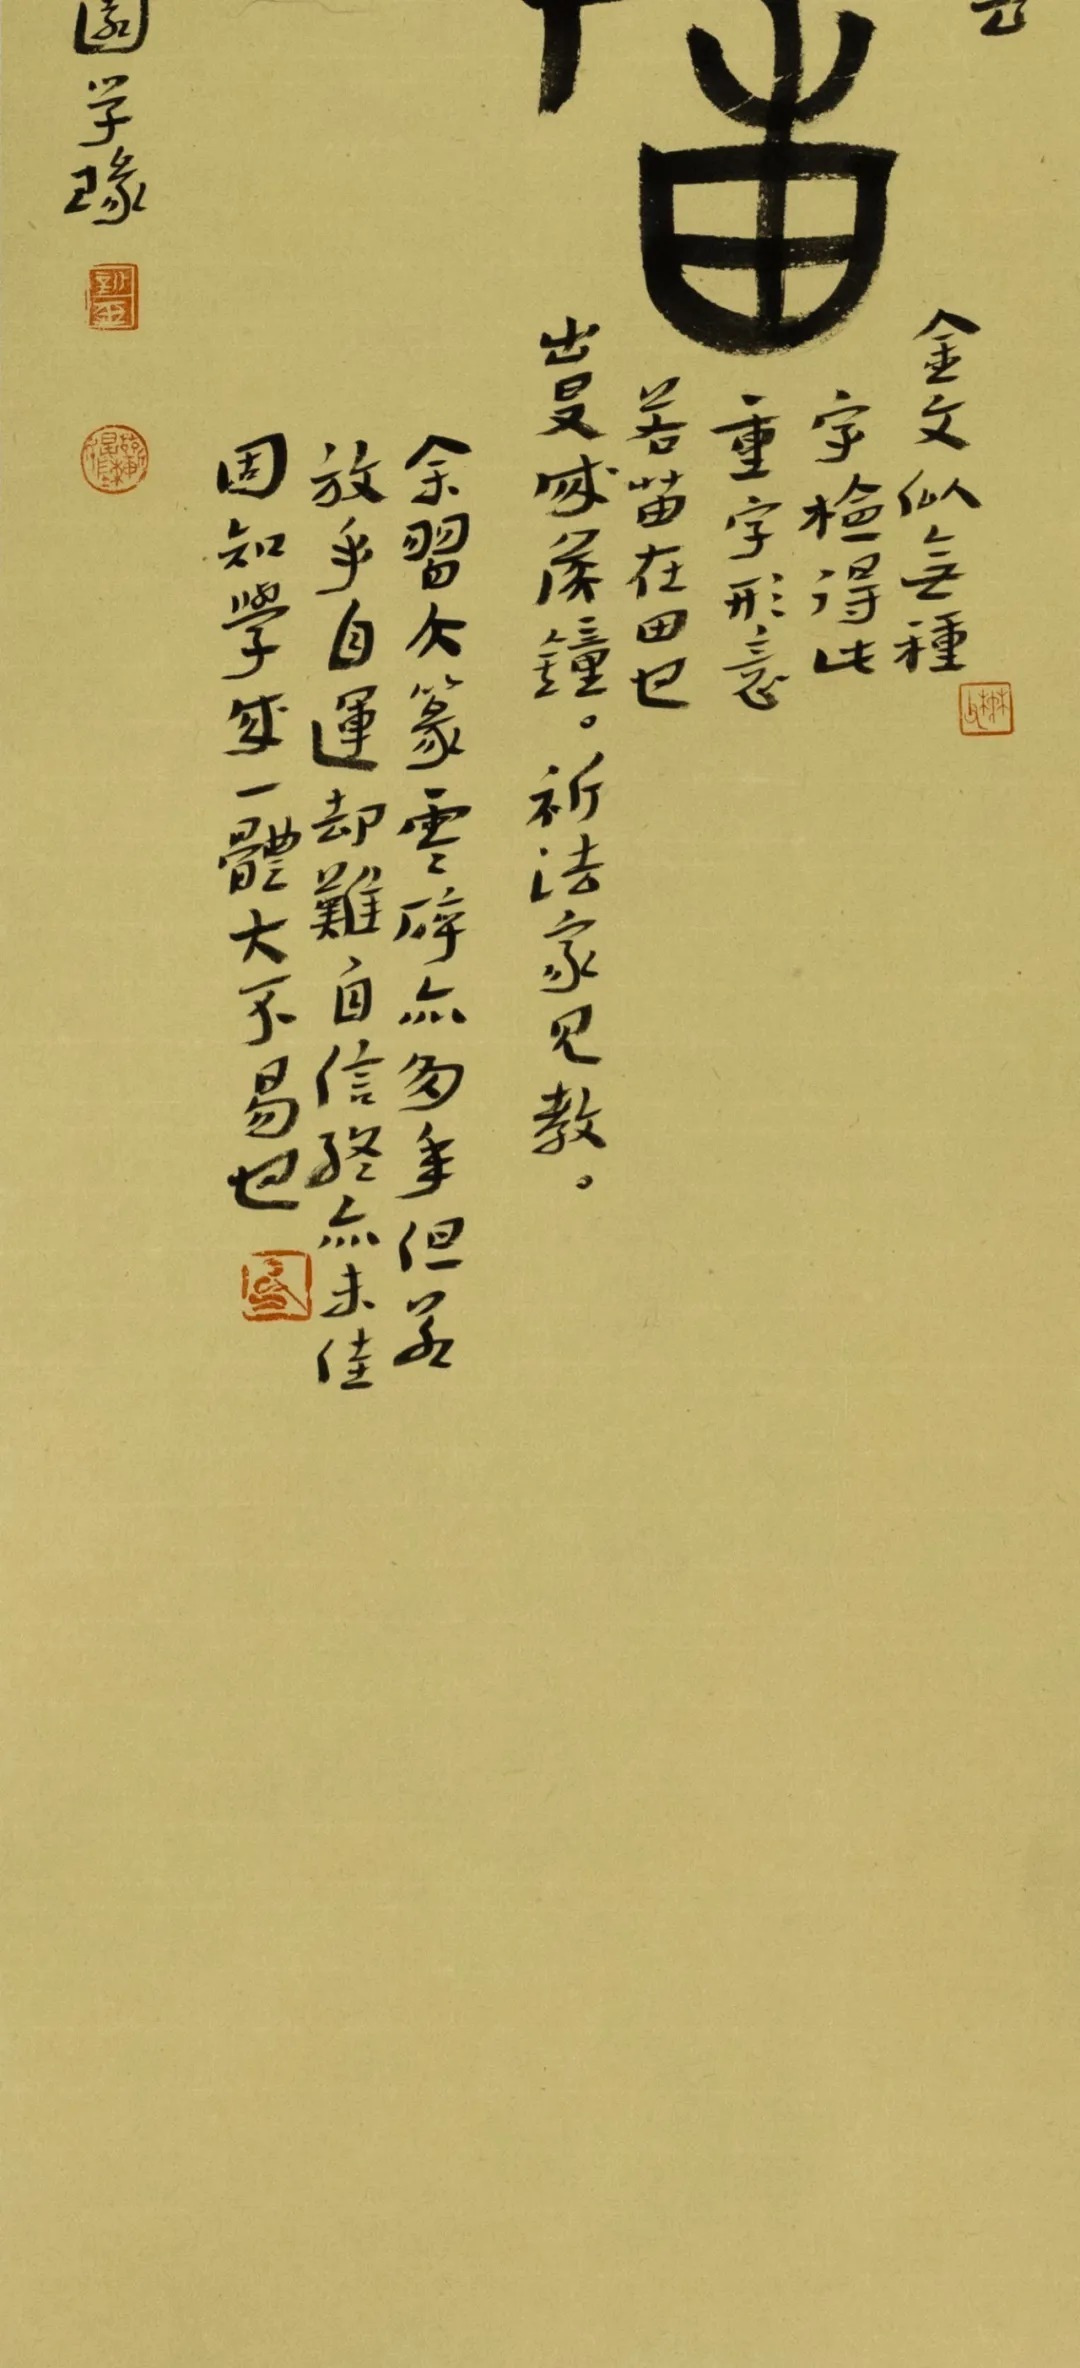 金文似無種
字檢得此
重字形意
若苗在田也
出 成侯鐘。祈法家見教。
余習大篆零碎亦多年但若
放手自運却難自信終亦未佳
固知學成一體大不易也
園学瑑